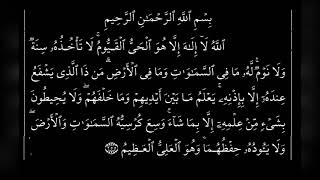 بِسْمِ اللَّهِ الرَّحْمَٰنِ الرَّحِيمِ
اللَّهُ لَآ إِلَٰهَ إِلَّا هُوَ الْحَيُّ الْقَيُّومُ ۚ لَا تَأْخُذُهُۥ سِنَةٌ
وَلَا نَوْمٌ ۚ لَّهُۥ مَا فِى السَّمَٰوَٰتِ وَمَا فِى الْأَرْضِ ۗ مَن ذَا الَّذِى يَشْفَعُ
عِندَهُۥٓ إِلَّا بِإِذْنِهِۦ ۚ يَعْلَمُ مَا بَيْنَ أَيْدِيهِمْ وَمَا خَلْفَهُمْ ۖ وَلَا يُحِيطُونَ
بِشَىْءٍ مِّنْ عِلْمِهِۦٓ إِلَّا بِمَا شَآءَ ۚ وَسِعَ كُرْسِيُّهُ السَّمَٰوَٰتِ وَالْأَرْضَ ۖ
وَلَا يَـُٔودُهُۥ حِفْظُهُمَا ۚ وَهُوَ الْعَلِىُّ الْعَظِيمُ